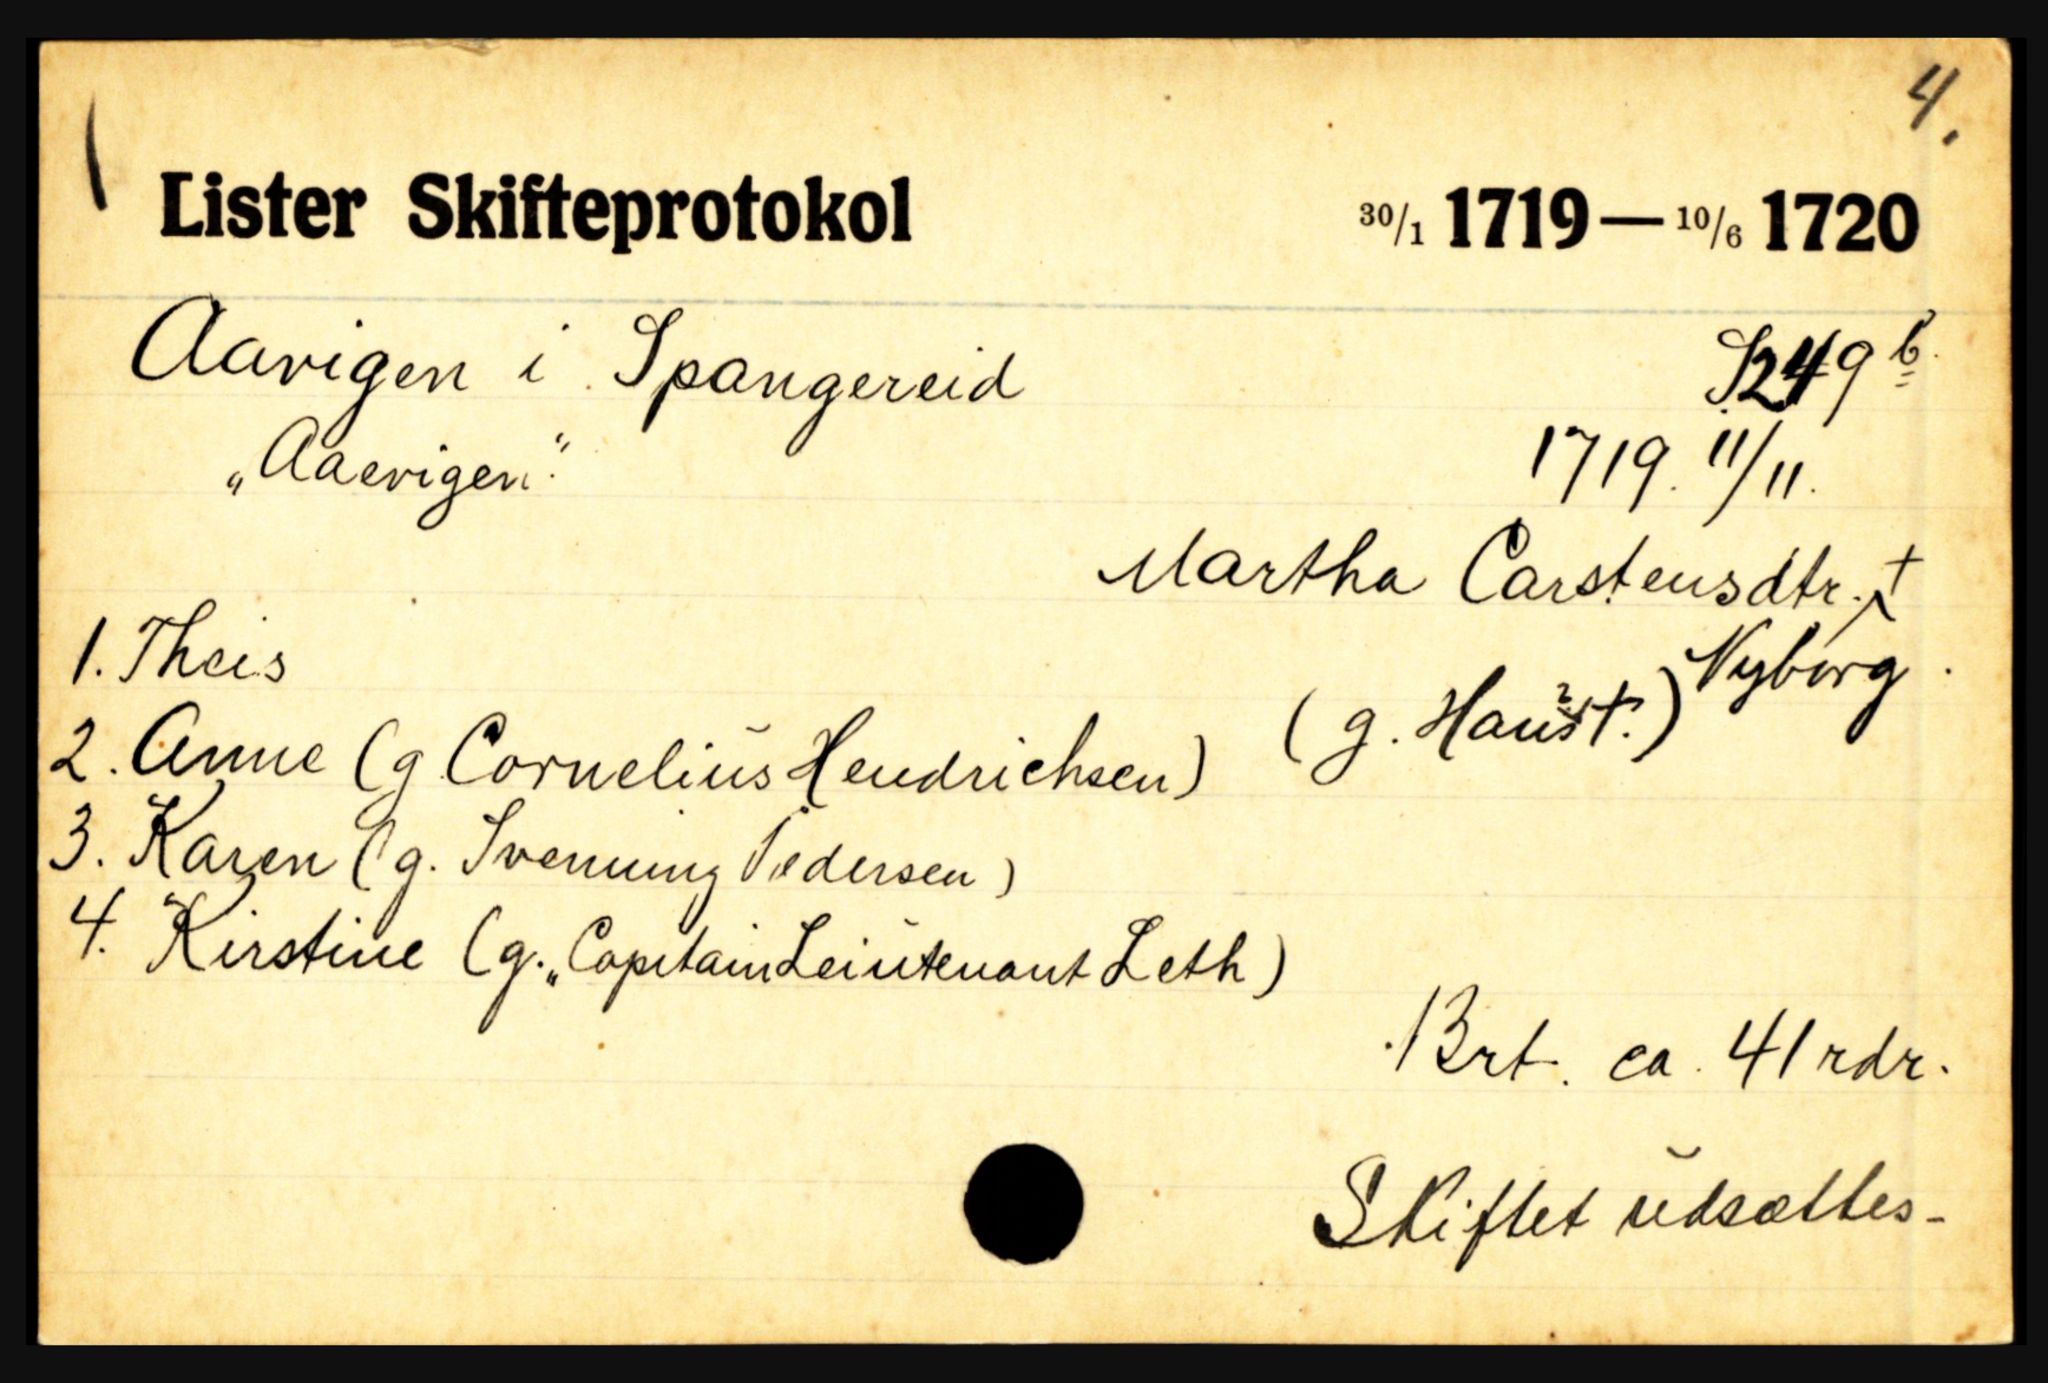 4.
Lister Skifteprotokol 30/1 1719 — 10/6 1720
Aavigen i Spangereid S. 249 b.
„Aaevigen". 1719. 11/11.
Martha Carstensdtr. †
Nyborg.
1. Theis
(g. Haust.)
2. Anne (g. Cornelius Hendrichsen)
3. Karen (g. Svenning Pedersen)
4. Kirstine (g. „Capitain Leiutenant Leth)
Brt. ca. 41 rdr.
Skiftet udsættes-